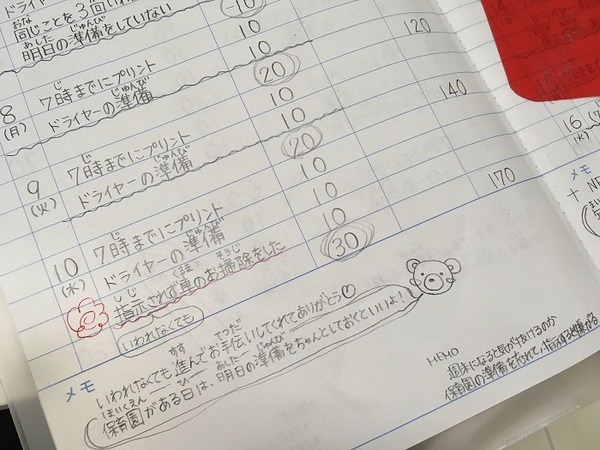 ドライヤー
おな
同じことを3回いわ
あした じゅんび
明日の準備をしていない
-10
10
8
(月)
じ
7時までにプリント
10
じゅんび
ドライヤーの準備
10
20
120
9
(火)
じ
7時までにプリント
10
じゅんび
ドライヤーの準備
10
20
140
10
(水)
じ
7時までにプリント
10
じゅんび
ドライヤーの準備
10
しじ そうじ
指示されず鳥のお掃除をした
10
30
170
いわれなくても
メモ
すす てつだ
いわれなくても進んでお手伝いしてくれてありがとう♡
ほいくえん ひ あした じゅんび
保育園がある日は、明日の準備をちゃんとしておくといいよ!
MEMO
週末になると気が抜けるのか
保育園の準備を忘れて、指示する
16
(火)
メモ
+